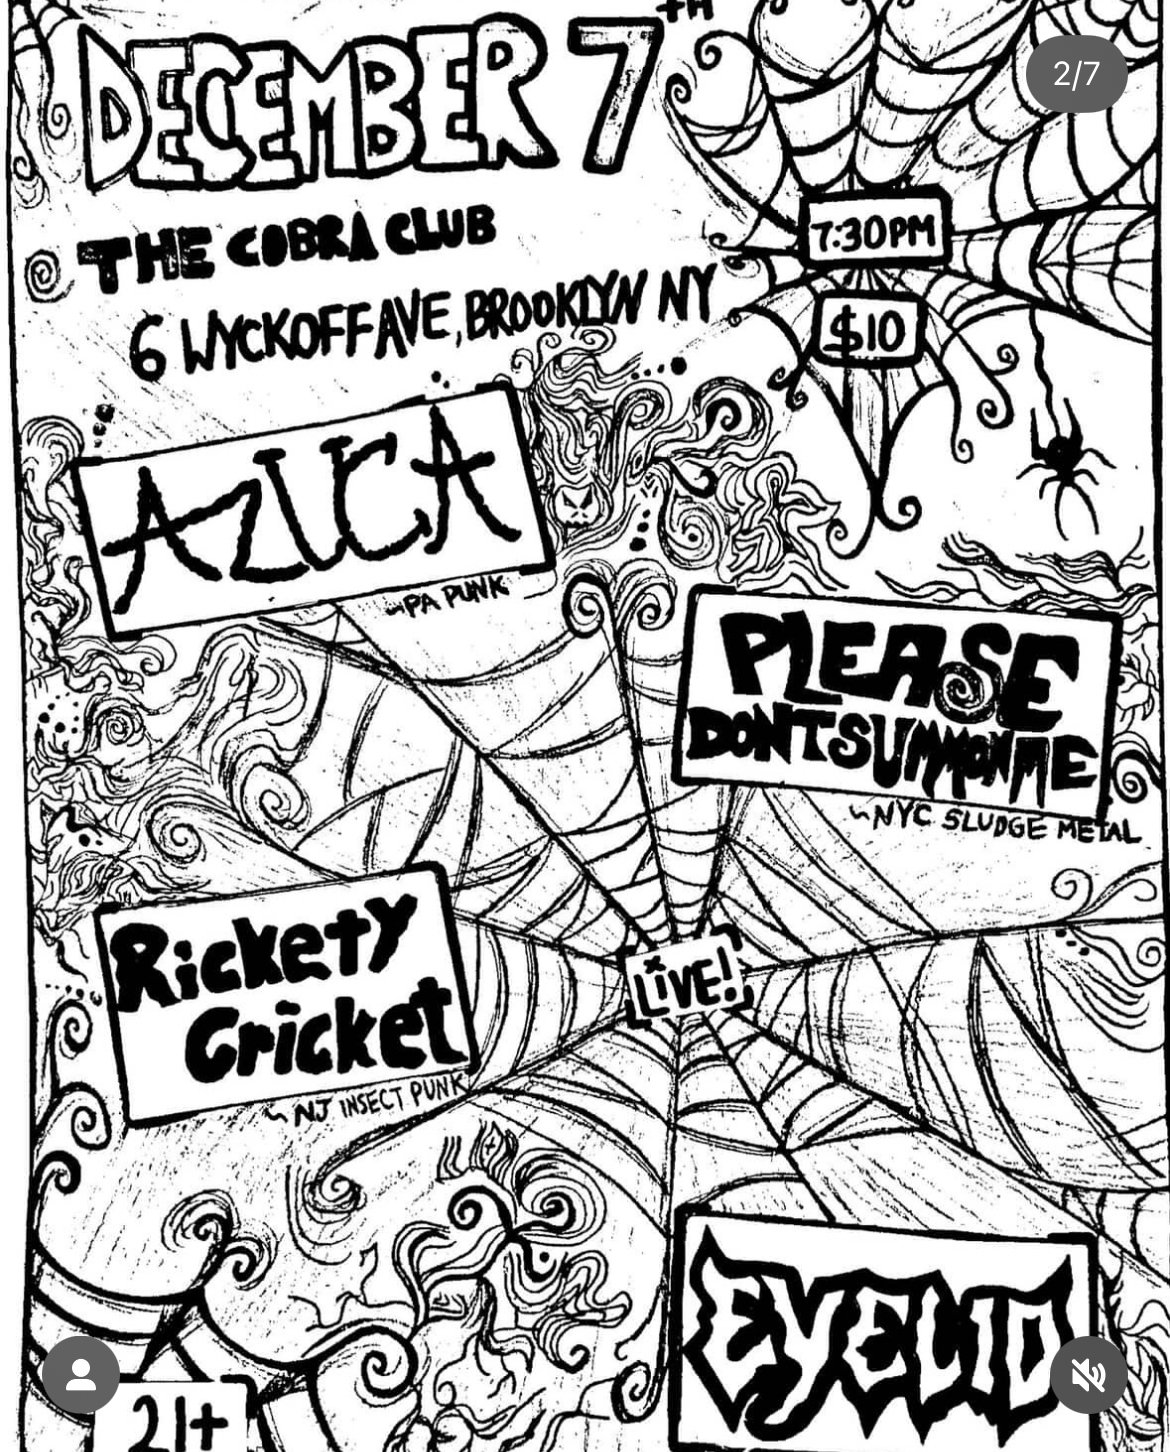 DECEMBER 7TH
2/7
THE COBRA CLUB
7:30PM
6 WYCKOFF AVE, BROOKLYN NY
$10
AZUCA
~PA PUNK
PLEASE
DONT SUMMON ME
~NYC SLUDGE METAL
Rickety
Cricket
~NJ INSECT PUNK
LiVE!
EYELID
21+